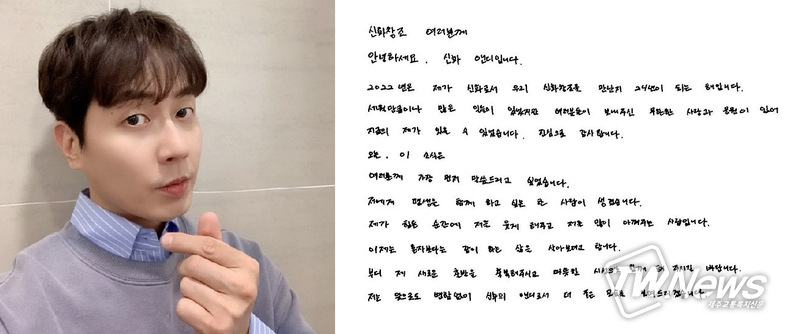 신화창조 여러분께
안녕하세요. 신화 앤디입니다.
2022년은 제가 신화로서 우리 신화창조를 만난지 24년이 되는 해입니다.
세월만큼이나 많은 일들이 있었지만 여러분들이 보내주신 무한한 사랑과 응원이 있어
지금의 제가 있을 수 있었습니다. 진심으로 감사합니다.
오늘, 이 소식은
여러분께 가장 먼저 말씀드리고 싶었습니다.
저에게 평생을 함께 하고 싶은 한 사람이 생겼습니다.
제가 힘든 순간에 저를 웃게 해주고 저를 많이 아껴주는 사람입니다.
이제는 혼자보다는 같이 하는 삶을 살아보려고 합니다.
부디 저의 새로운 출발을 축복해주시고 따뜻한 시선으로 함께 해 주시길 바랍니다.
저는 앞으로도 변함없이 신화의 앤디로서 더 좋은 모습으로
TWNews
제주교통복지신문